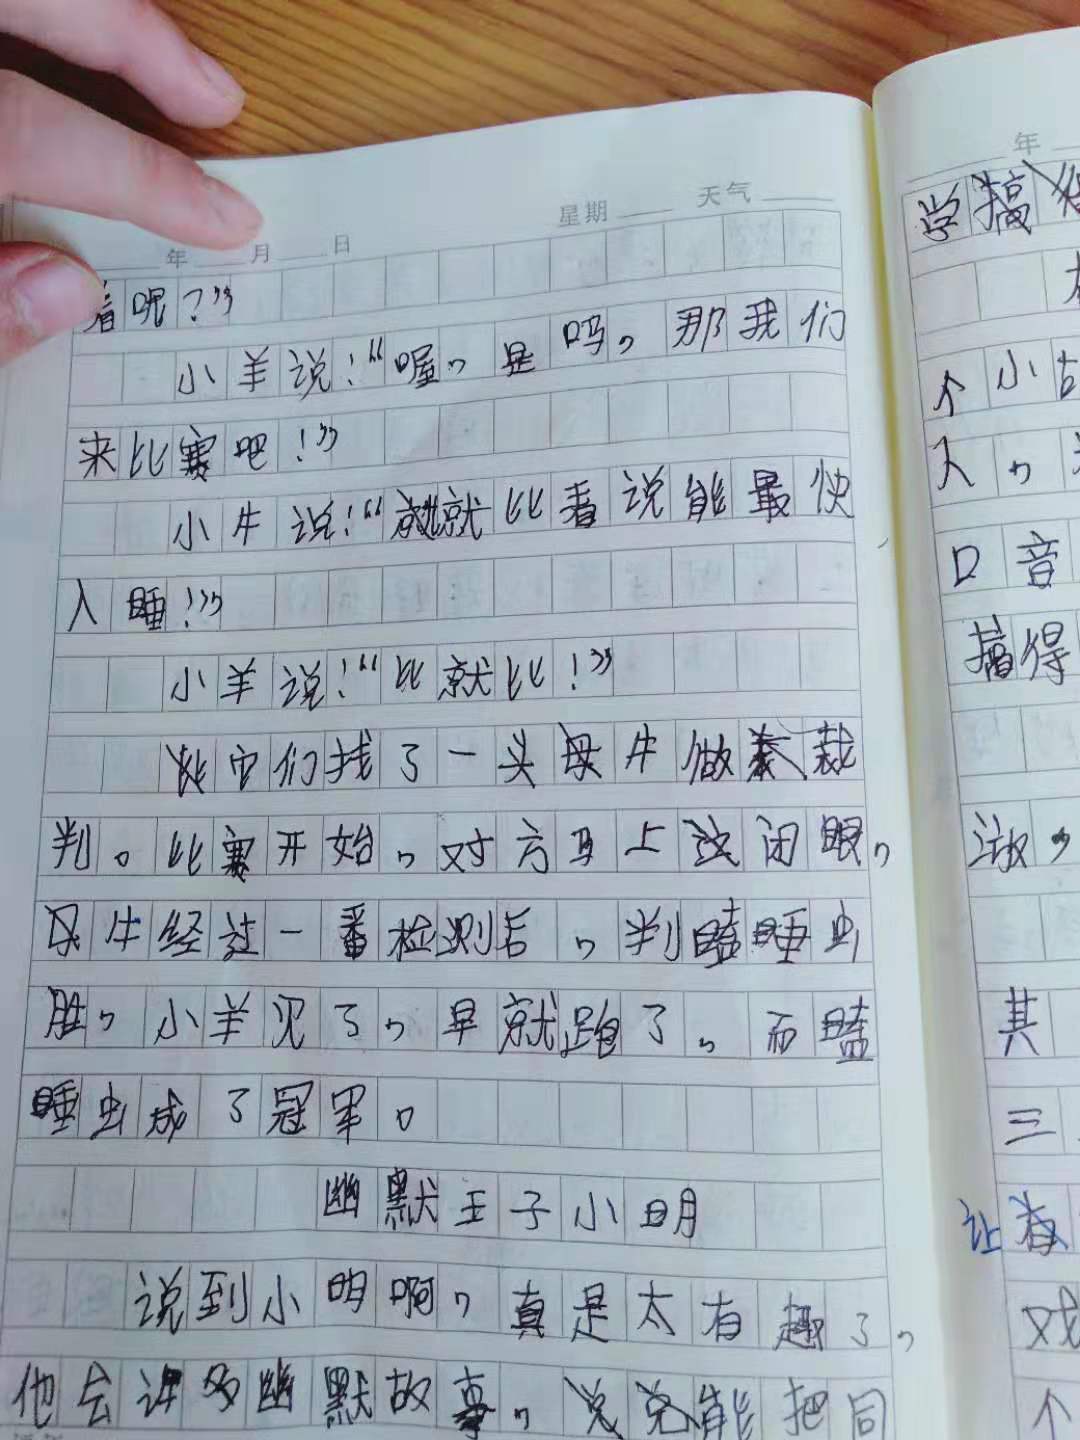 年 月 日 星期 天气
着呢？”
小羊说：“喔，是吗，那我们
来比赛吧！”
小牛说：“就比看说能最快
入睡！”
小羊说：“比就比！”
它们找了一头母牛做裁
判。比赛开始，对方马上闭眼，
母牛经过一番检测后，判瞌睡虫
胜，小羊见了，早就跑了。而瞌
睡虫成了冠军。
幽默王子小明
说到小明啊，真是太有趣了，
他会讲多幽默故事，能把同
年
学搞
个小故
人，
口音
搞得
激，
其
三
让
戏
个